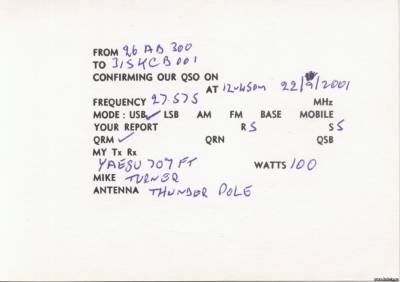 FROM 26 AB 300
TO 31SKCB001
CONFIRMING OUR QSO ON
AT 12.45am 22/9/2001
FREQUENCY 27.575 MHz
MODE: USB✓ LSB AM FM BASE MOBILE
YOUR REPORT R 5 S 5
QRM ✓ QRN QSB
MY Tx Rx
YAESU 707 FT WATTS 100
MIKE TURNER
ANTENNA THUNDER POLE